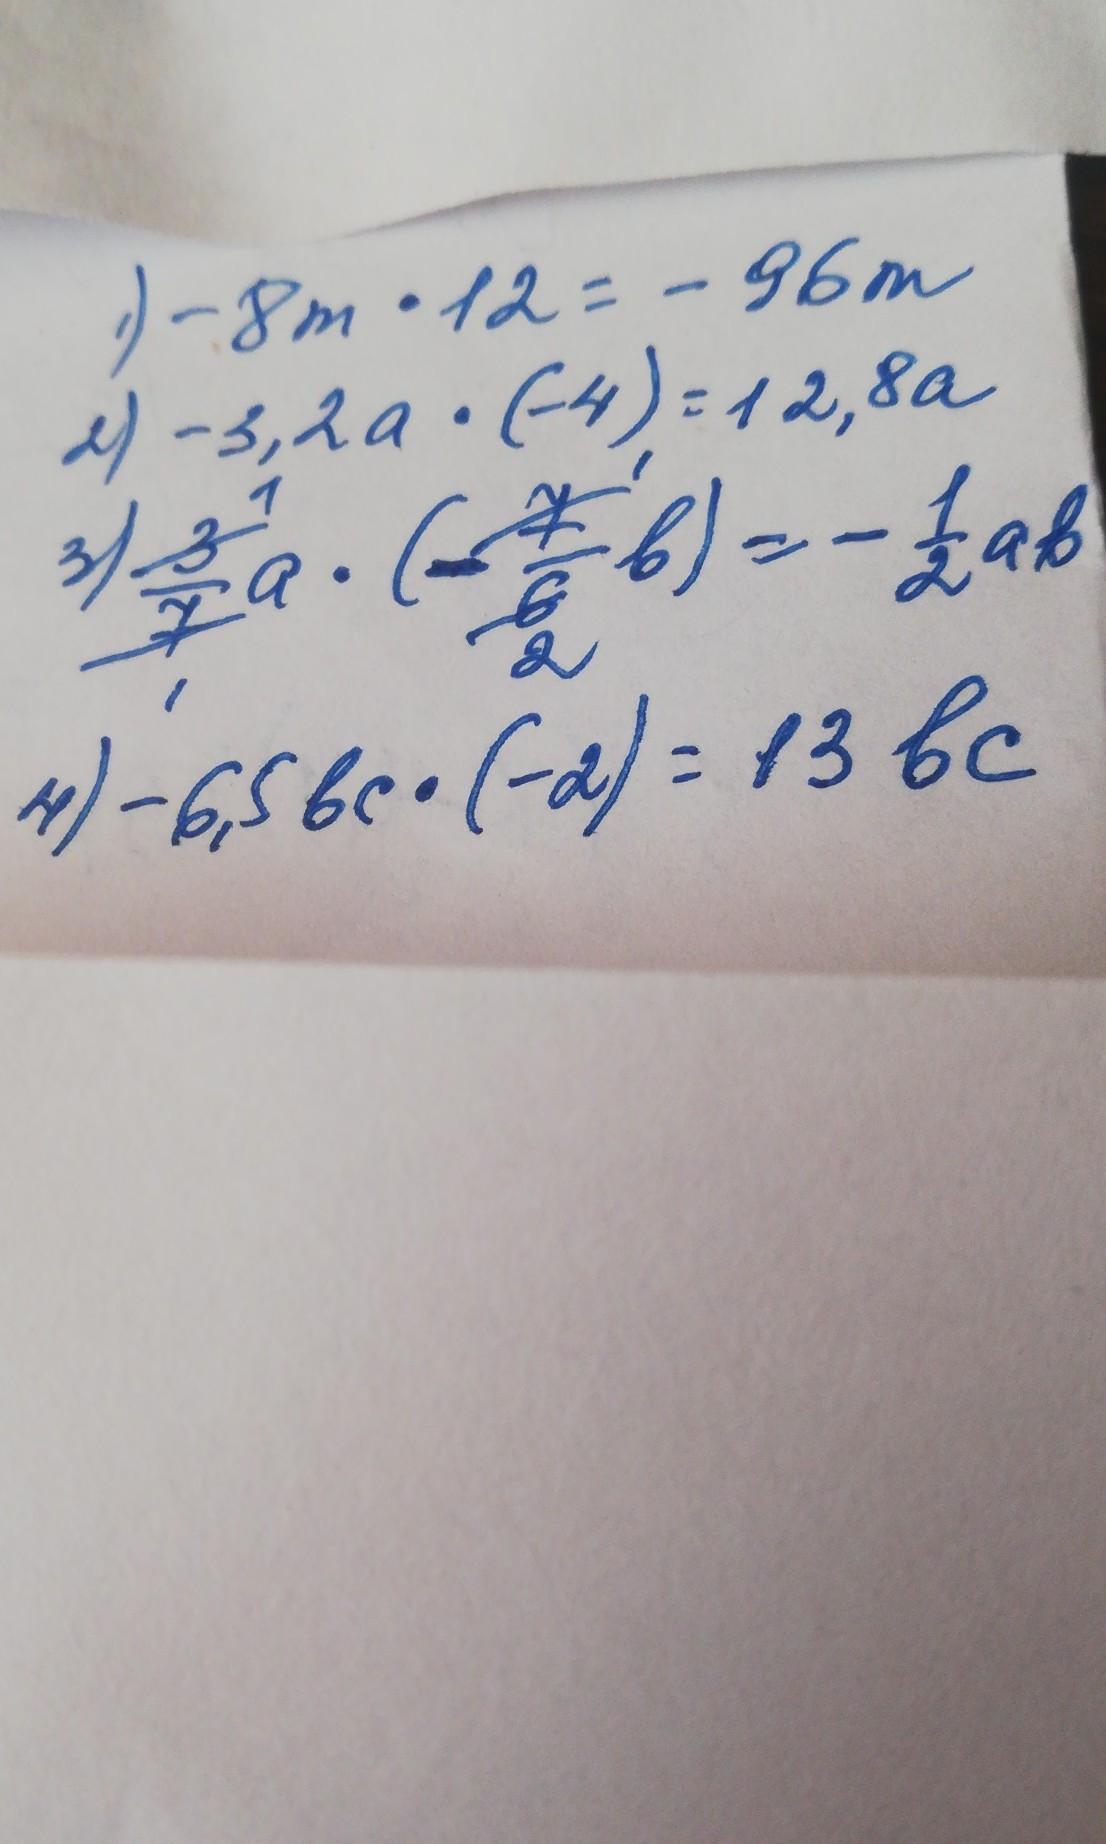 1) -8m · 12 = - 96m
2) -3,2a · (-4) = 12,8a
3) 3/7 a · (- 7/6 b) = - 1/2 ab
4) -6,5bc · (-2) = 13 bc